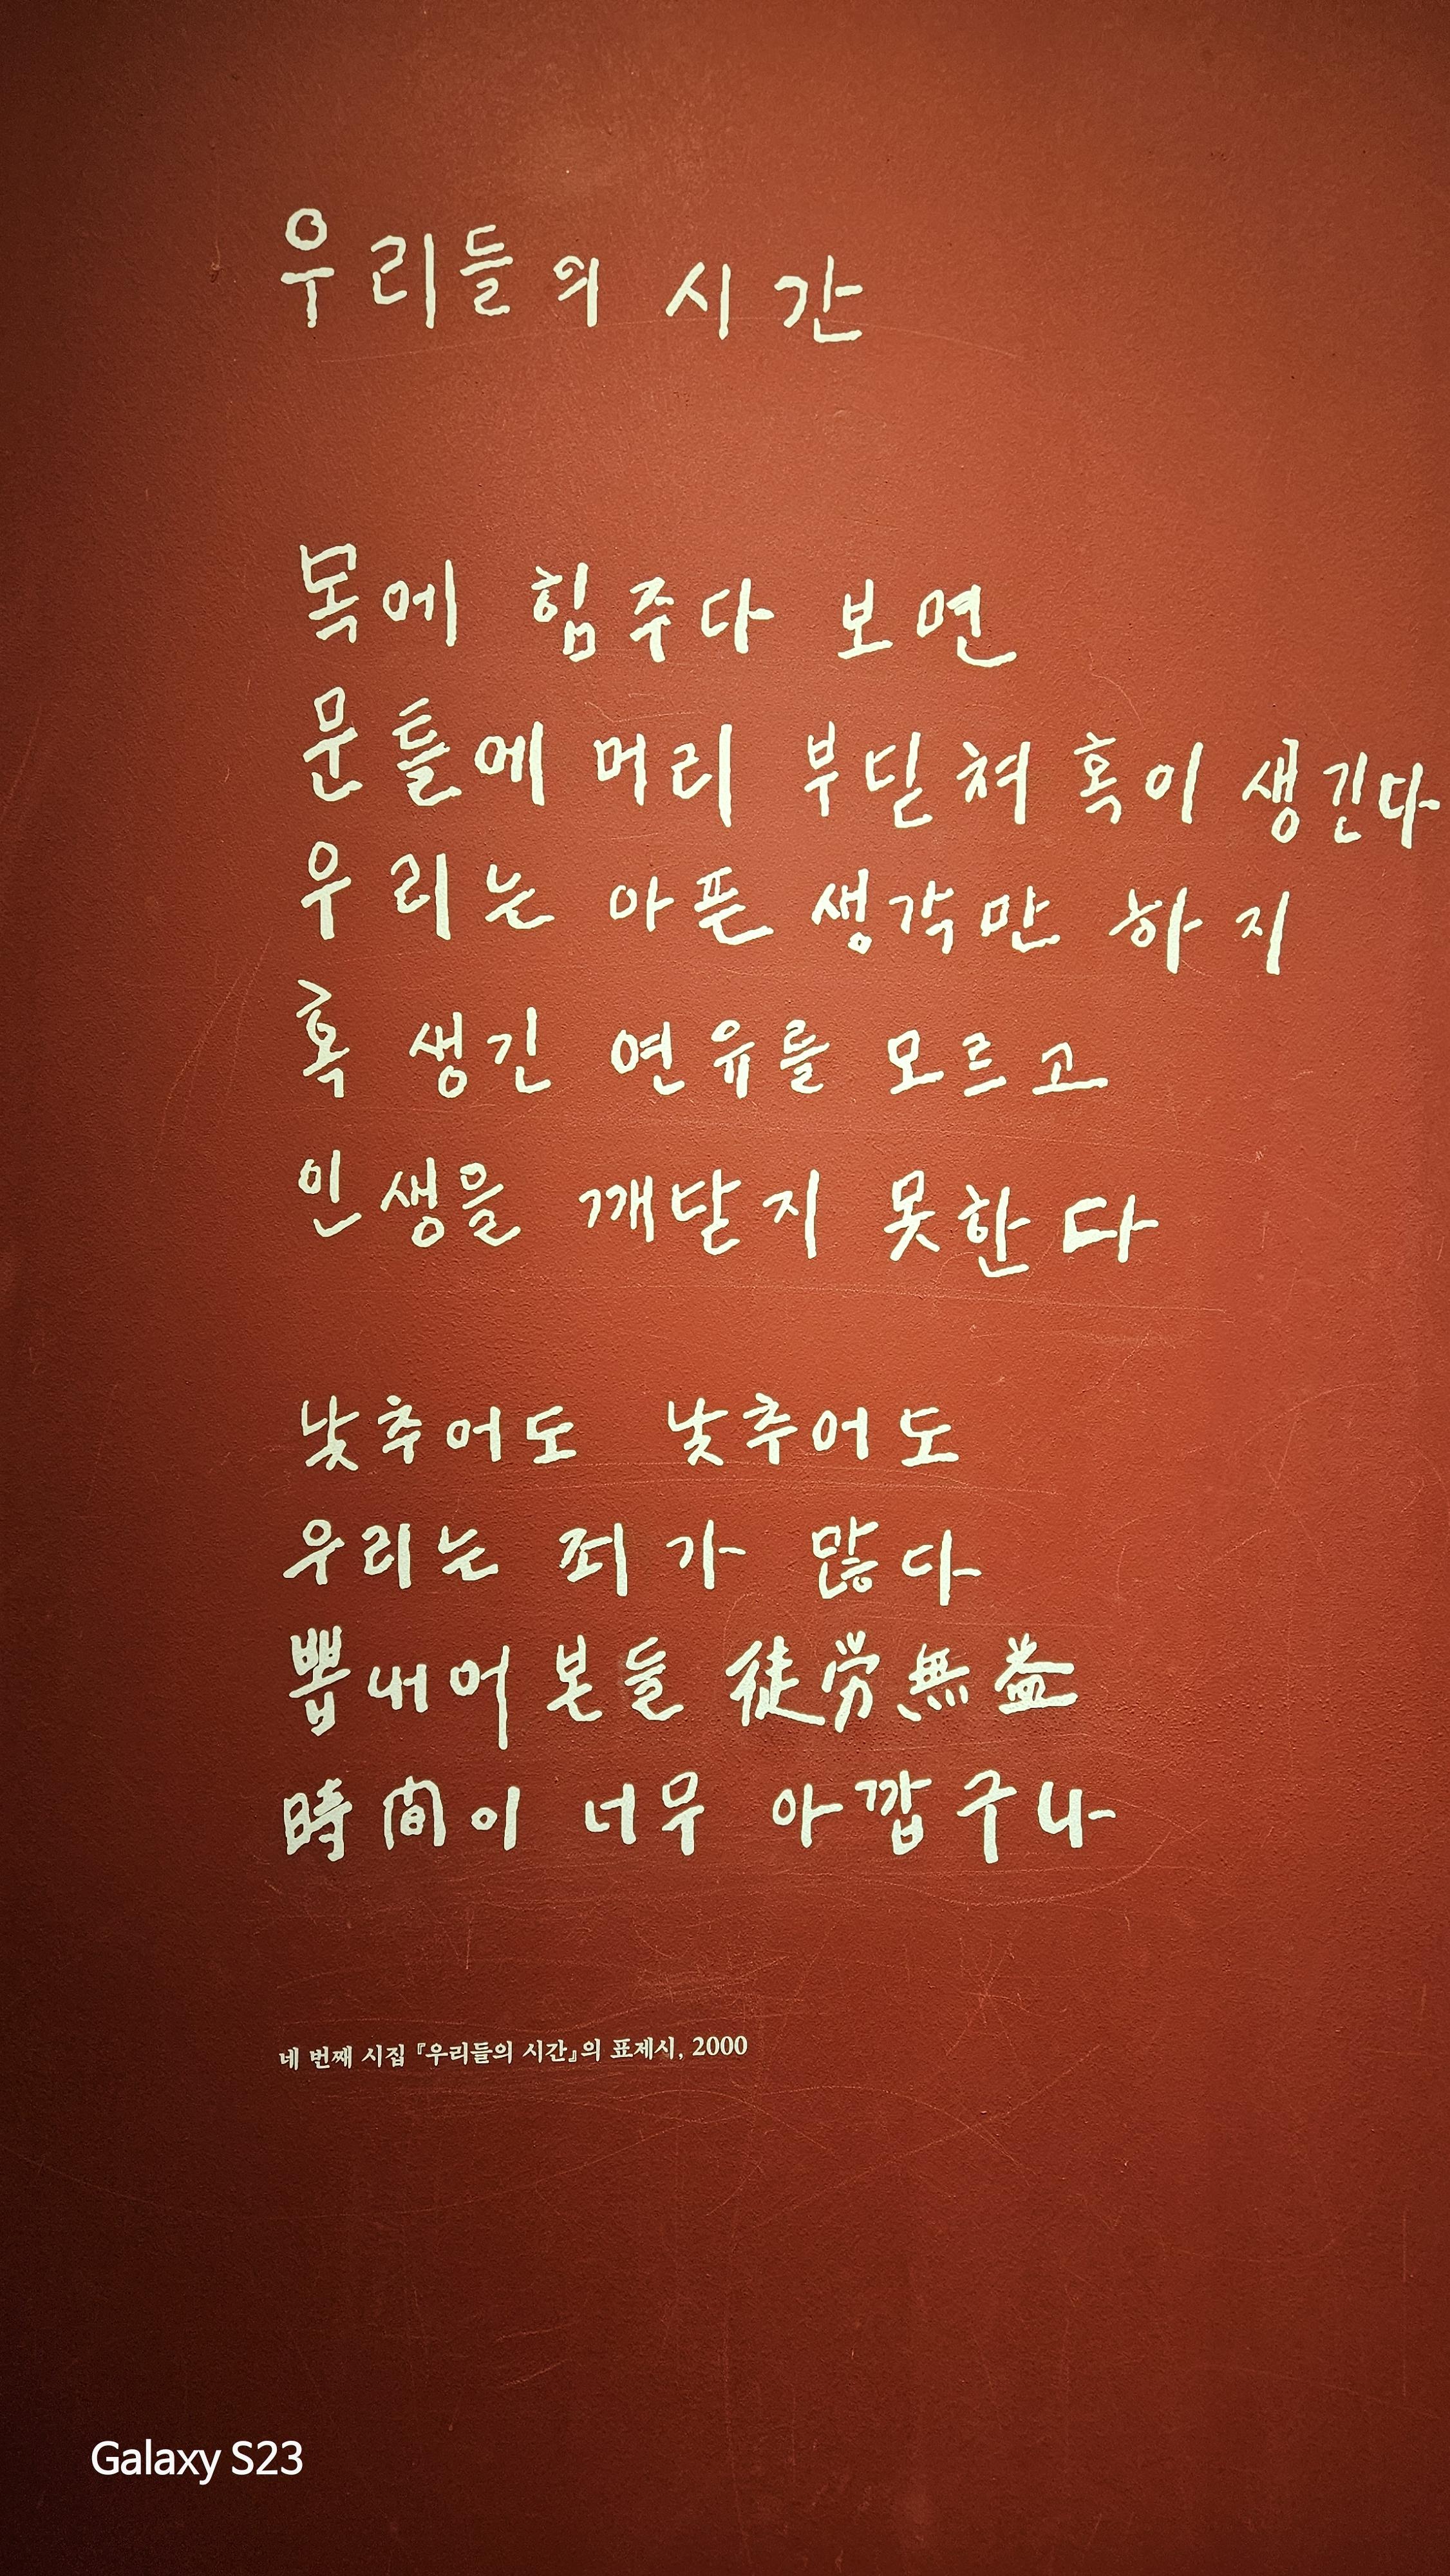 우리들의 시간
목에 힘주다 보면
문틀에 머리 부딛쳐 혹이 생긴다
우리는 아픈 생각만 하지
혹 생긴 연유를 모르고
인생을 깨닫지 못한다
낮추어도 낮추어도
우리는 죄가 많다
뽑내어 본들 徒労無益
時間이 너무 아깝구나
네 번째 시집 『우리들의 시간』의 표제시, 2000
Galaxy S23